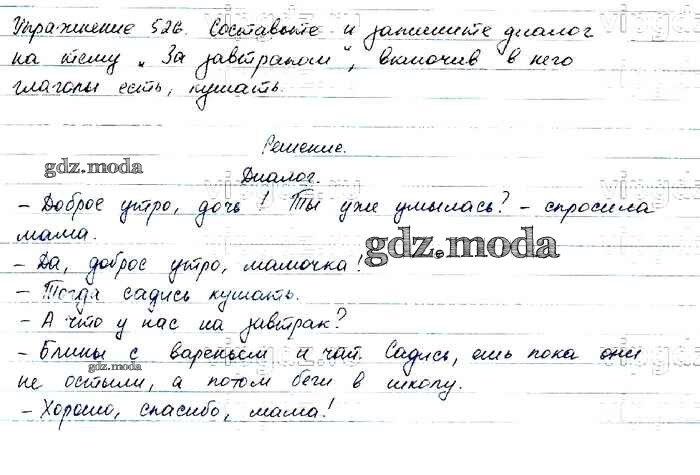 Упражнение 526. Составьте и запишите диалог
на тему „За завтраком", включив в него
глаголы есть, кушать.
Решение.
gdz.moda
Диалог.
- Доброе утро, дочь! Ты уже умылась? - спросила
мама.
gdz.moda
- Да, доброе утро, мамочка!
- Тогда садись кушать.
- А что у нас на завтрак?
- Блины с вареньем и чай. Садись, ешь пока они
gdz.moda
не остыли, а потом беги в школу.
- Хорошо, спасибо, мама!